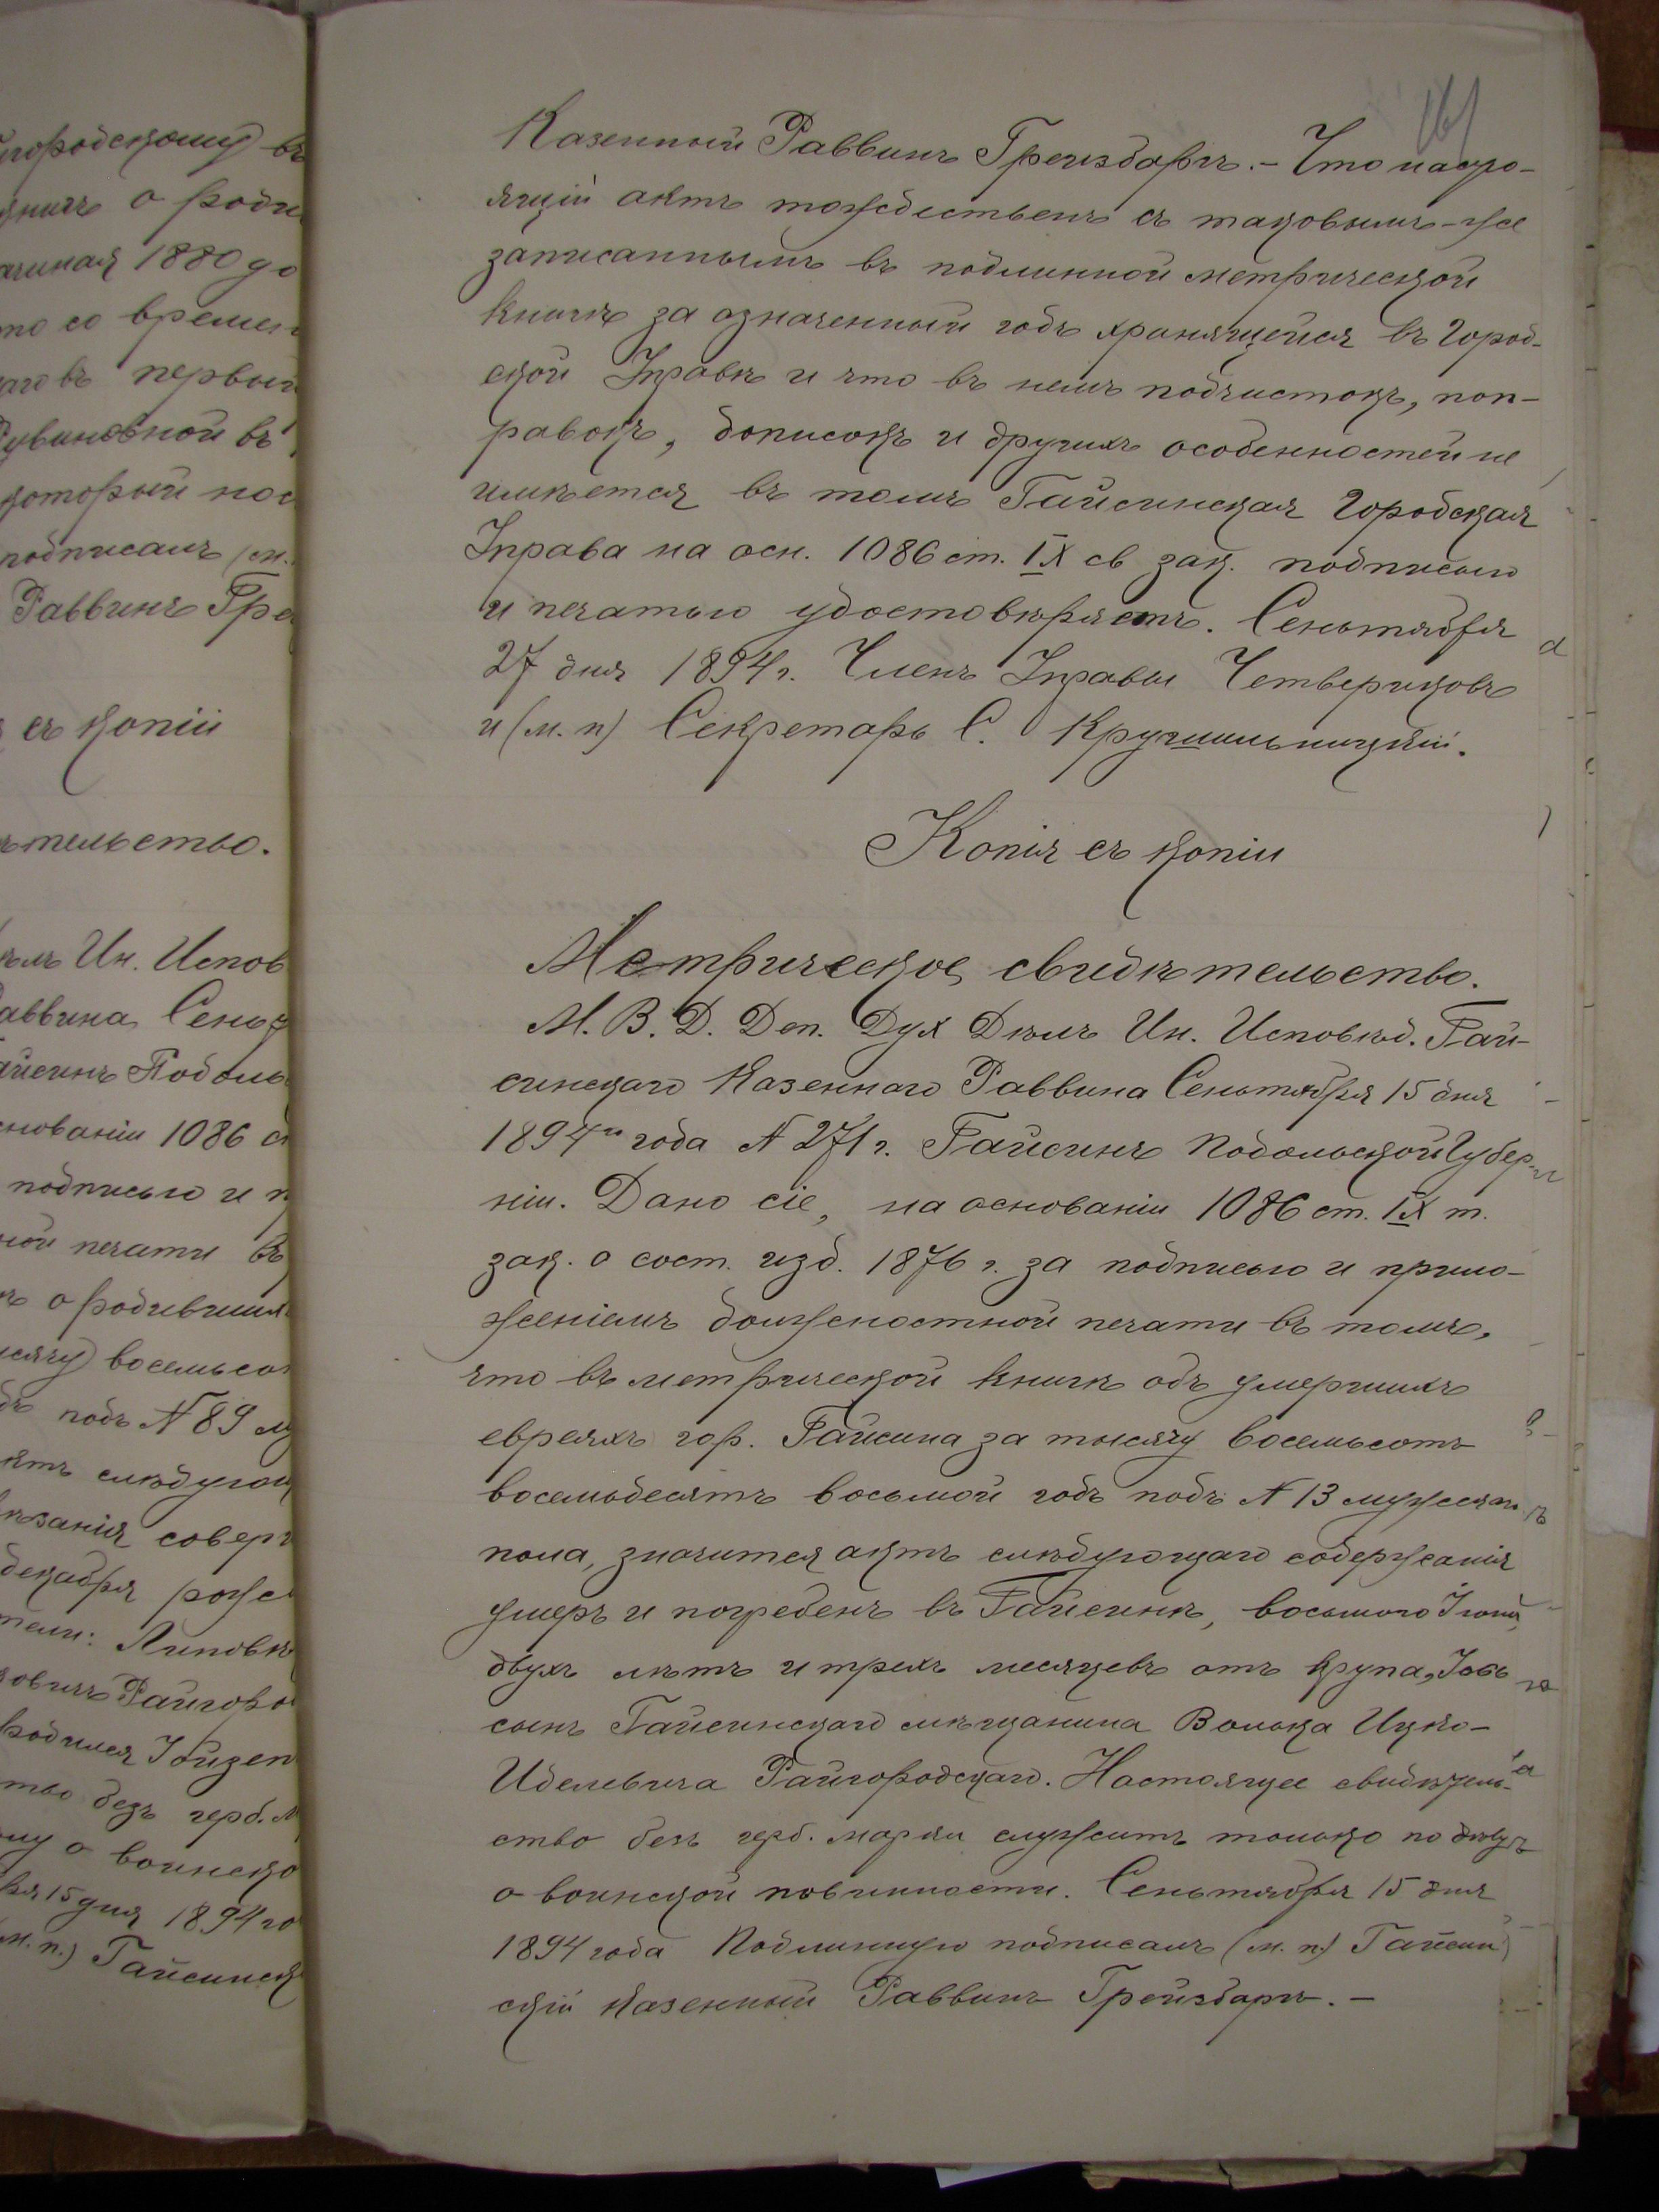 городскому въ
о роди
1880 до
со времен
въ первый
въ
который
подписалъ (м.
Раввинъ Гре
съ копіи
тельство.
Ин. Исповѣ
Раввина Сентя
Подоль
основаніи 1086 с
подписью и п
печати въ
о родившихся
восемьсот
подъ N 89 му
слѣдующ
совер
декабря
Липовк
Райгоро
родился
безъ герб. м
о воинско
15 дня 1894 го
м. п.) Гайсинск
161
Казенный Раввинъ Грейзбортъ. – Что насто-
ящій актъ тождественъ съ таковымъ-же
записаннымъ въ подлинной метрической
книгѣ за означенный годъ хранящейся въ Город-
ской Управѣ и что въ немъ подчистокъ, поп-
равокъ, дописокъ и другихъ особенностей не
имѣется въ томъ Гайсинская Городская
Управа на осн. 1086 ст. IX св зак. подписью
и печатью удостовѣряетъ. Сентября
27 дня 1894 г. Членъ Управы Четвериковъ
и (м. п) Секретарь С.
Копія съ копіи
Метрическое свидѣтельство.
М. В. Д. Деп. Дух Дѣлъ Ин. Исповѣд. Гай-
синскаго Казеннаго Раввина Сентября 15 дня
1894 года N 271 г. Гайсинъ Подольской Губер-
ніи. Дано сіе, на основаніи 1086 ст. IX т.
зак. о сост. изд. 1876 г. за подписью и прило-
женіемъ должностной печати въ томъ,
что въ метрической книгѣ объ умершихъ
евреяхъ гор. Гайсина за тысячу восемьсотъ
восемьдесятъ восьмой годъ подъ N 13 мужескаго
пола, значится актъ слѣдующаго содержанія
умеръ и погребенъ въ Гайсинѣ, восьмого Іюня,
двухъ лѣтъ и трехъ месяцевъ отъ крупа,
сынъ Гайсинскаго мѣщанина Волька Ицко-
Иделевича Райгородскаго. Настоящее свидѣтель-
ство безъ герб. марки служитъ только по дѣлу
о воинской повинности. Сентября 15 дня
1894 года Подлинную подписалъ (м. п.) Гайсин
скій Казенный Раввинъ Грейзбортъ. –